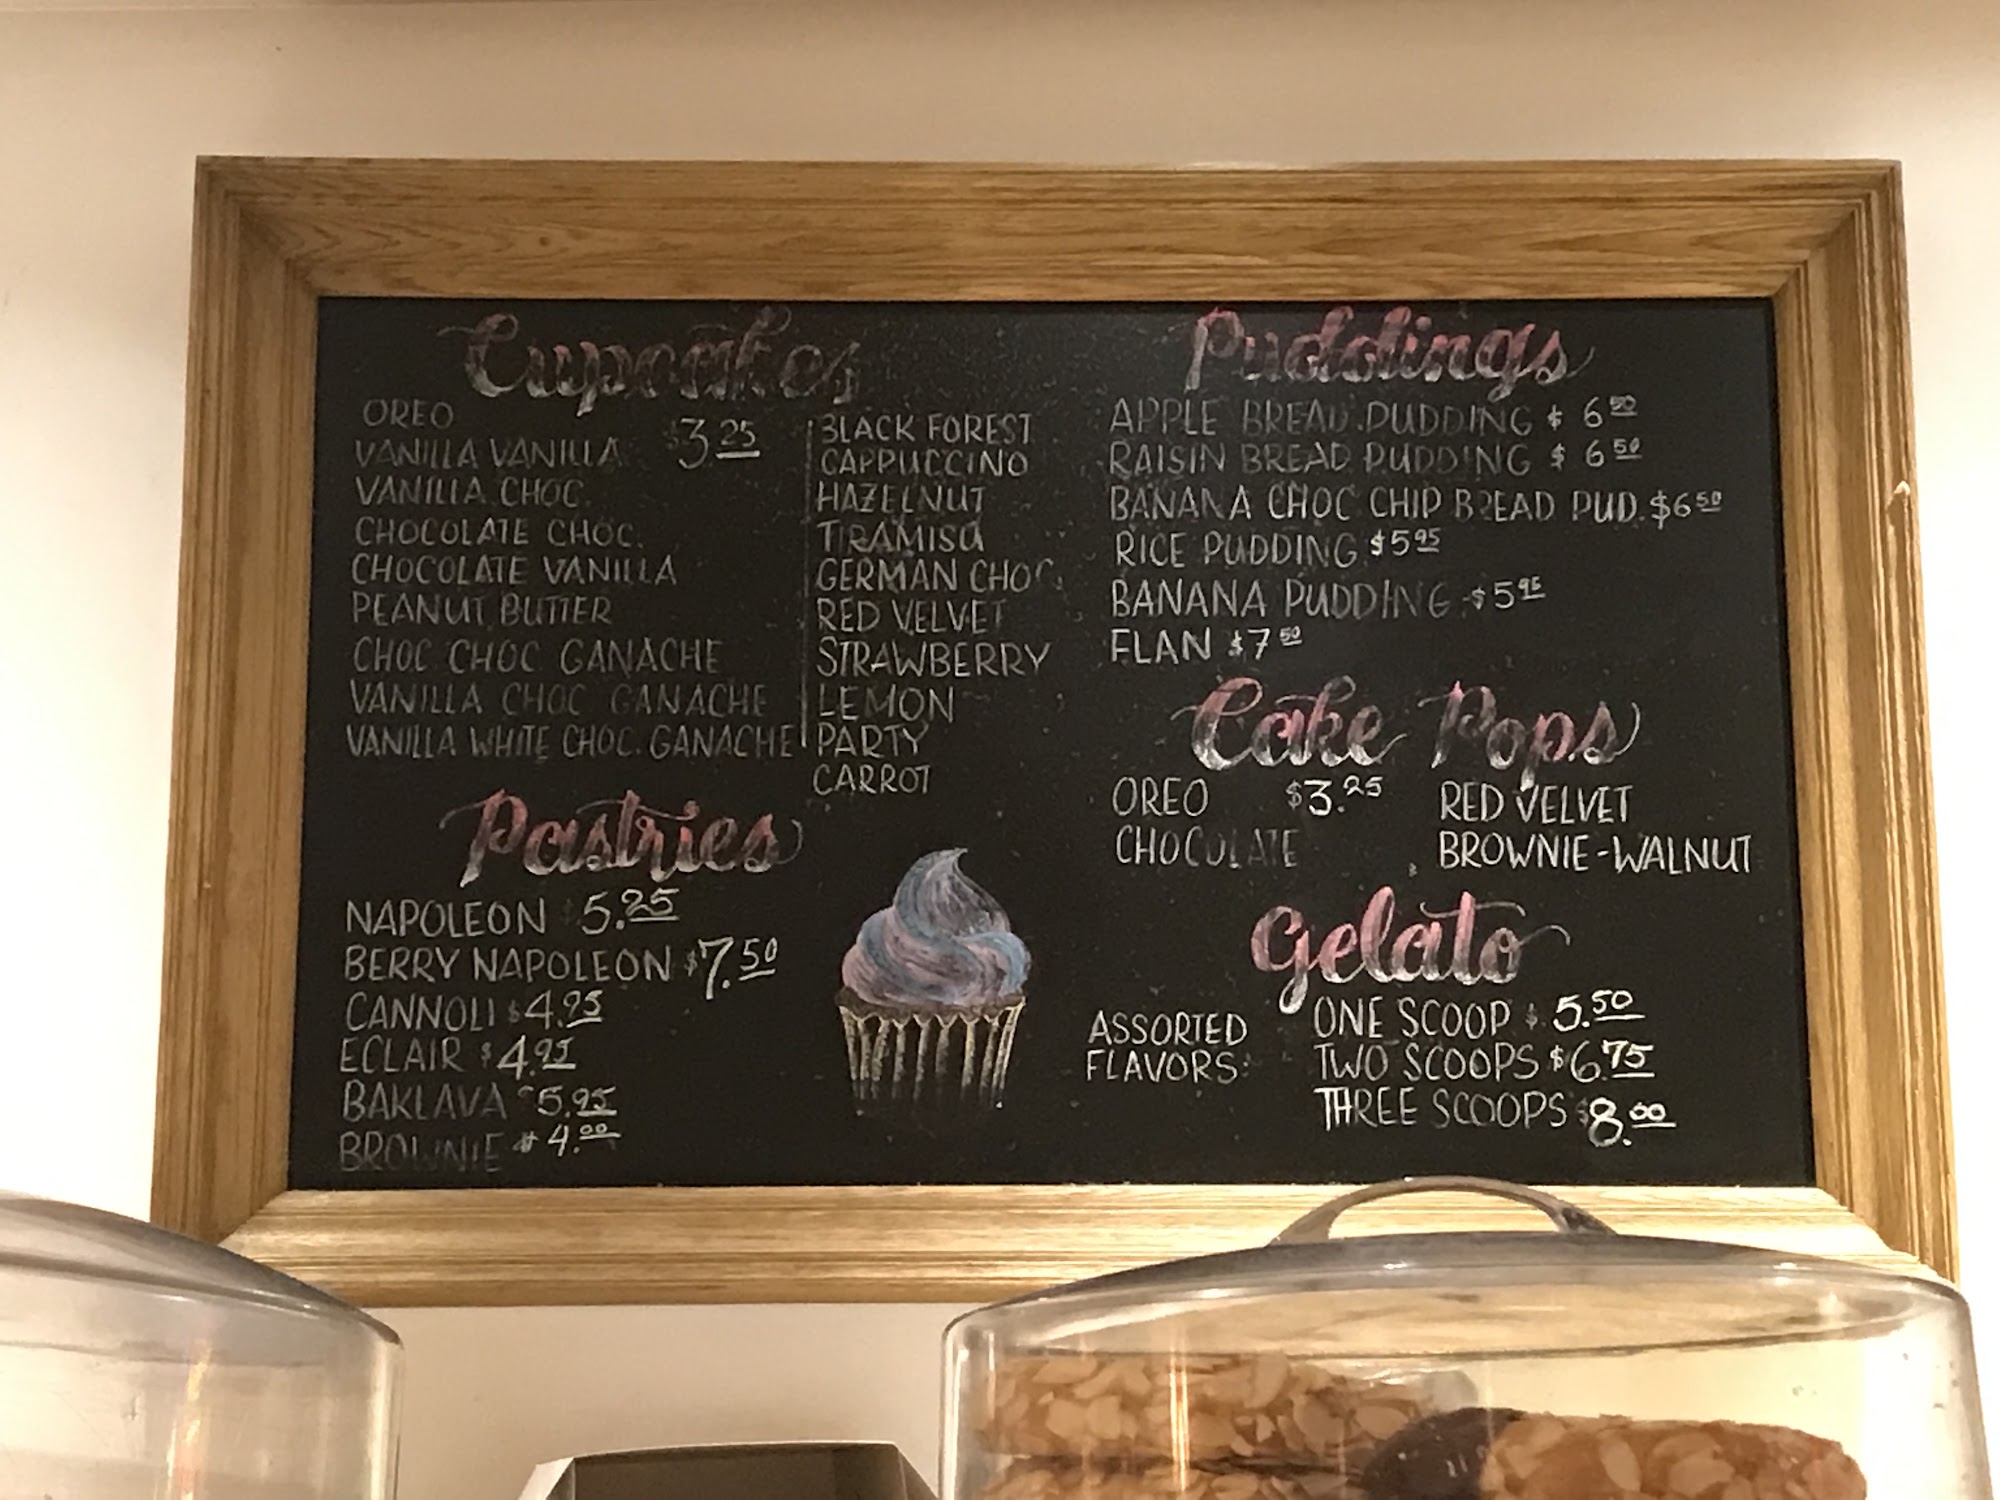 Cupcakes
OREO
VANILLA VANILLA $3.25
VANILLA CHOC.
CHOCOLATE CHOC.
CHOCOLATE VANILLA
PEANUT BUTTER
CHOC CHOC GANACHE
VANILLA CHOC GANACHE
VANILLA WHITE CHOC. GANACHE
BLACK FOREST
CAPPUCCINO
HAZELNUT
TIRAMISU
GERMAN CHOC
RED VELVET
STRAWBERRY
LEMON
PARTY
CARROT
Pastries
NAPOLEON $5.25
BERRY NAPOLEON $7.50
CANNOLI $4.95
ECLAIR $4.95
BAKLAVA $5.95
BROWNIE $4.00
Puddings
APPLE BREAD PUDDING $6 50
RAISIN BREAD PUDDING $6 50
BANANA CHOC CHIP BREAD PUD. $6 50
RICE PUDDING $5 95
BANANA PUDDING $5 95
FLAN $7 50
Cake Pops
OREO $3.25 RED VELVET
CHOCOLATE BROWNIE-WALNUT
Gelato
ASSORTED
FLAVORS:
ONE SCOOP $5.50
TWO SCOOPS $6.75
THREE SCOOPS $8.00